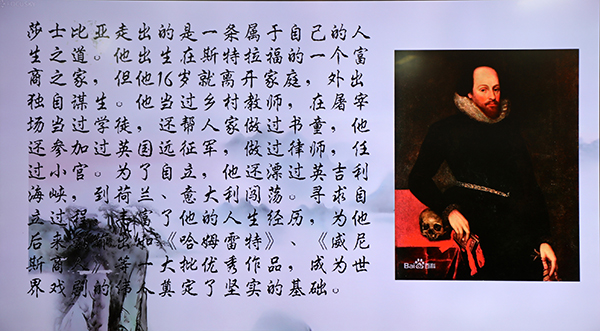 莎士比亚走出的是一条属于自己的人
生之道。他出生在斯特拉福的一个富
商之家，但他16岁就离开家庭，外出
独自谋生。他当过乡村教师，在屠宰
场当过学徒，还帮人家做过书童，他
还参加过英国远征军，做过律师，任
过小官。为了自立，他还漂过英吉利
海峡，到荷兰、意大利闯荡。寻求自
立过程，丰富了他的人生经历，为他
后来 出如《哈姆雷特》、《威尼
斯商 》等一大批优秀作品，成为世
界戏剧的伟人奠定了坚实的基础。
Bai百科